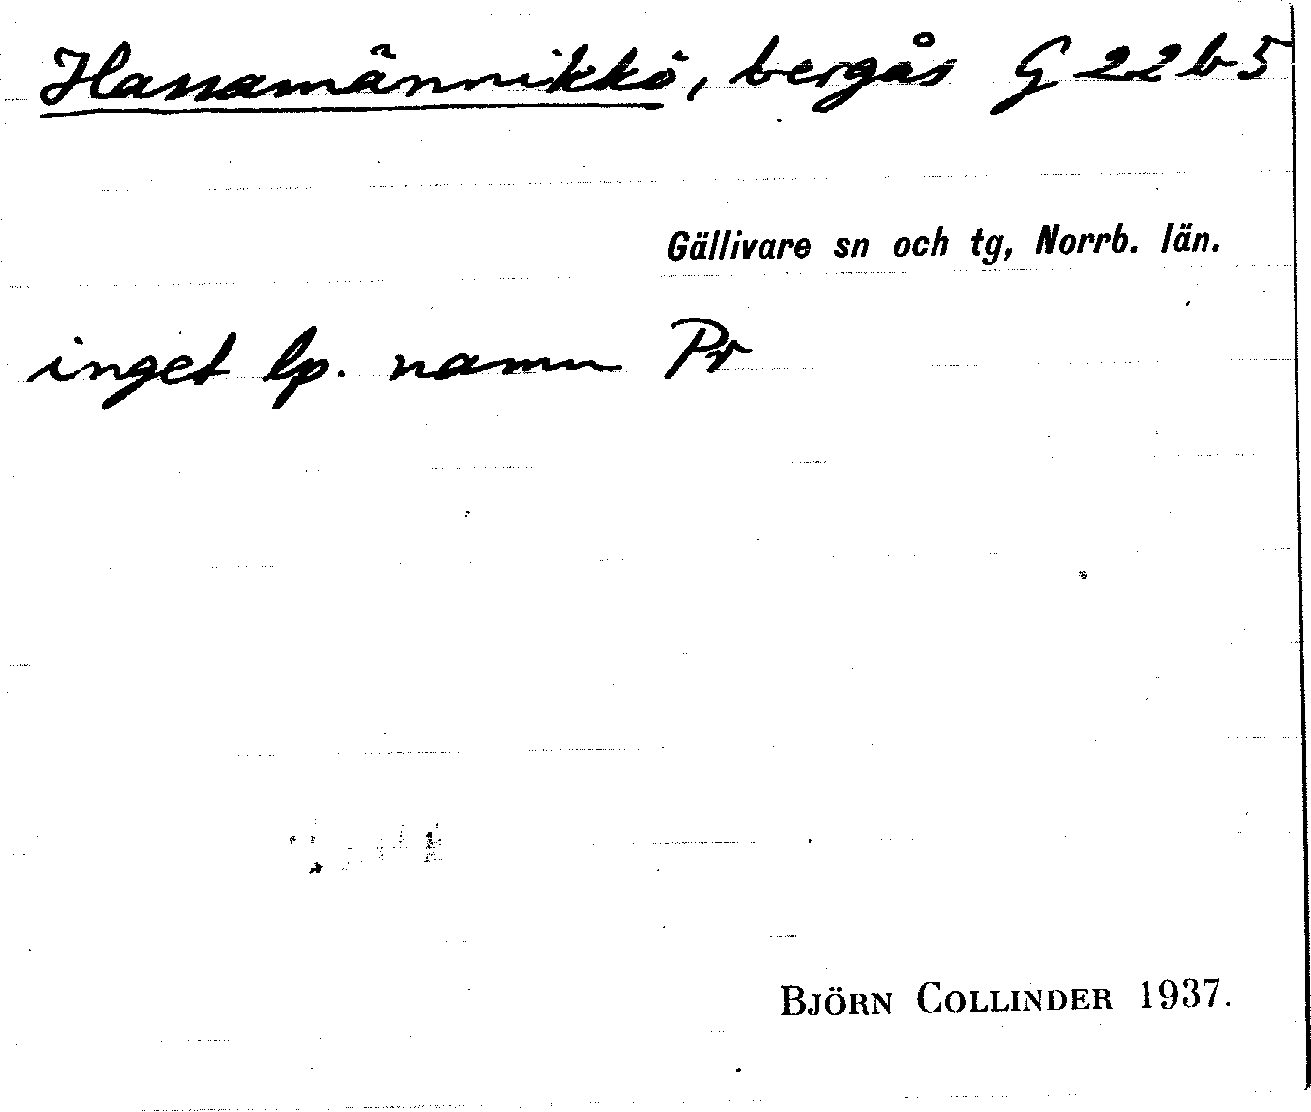 Hassamännikkö, bergås G 22 b 5
Gällivare sn och tg, Norrb. län.
inget lp. namn Pr
BJÖRN COLLINDER 1937.